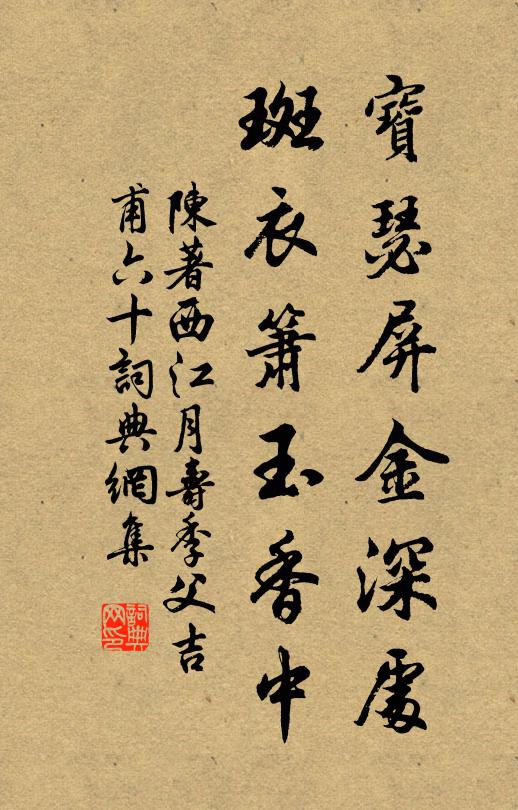 寶瑟屏金深處
斑衣簫玉香中
陳著西江月壽季父吉
甫六十詞典網集
詞典網印